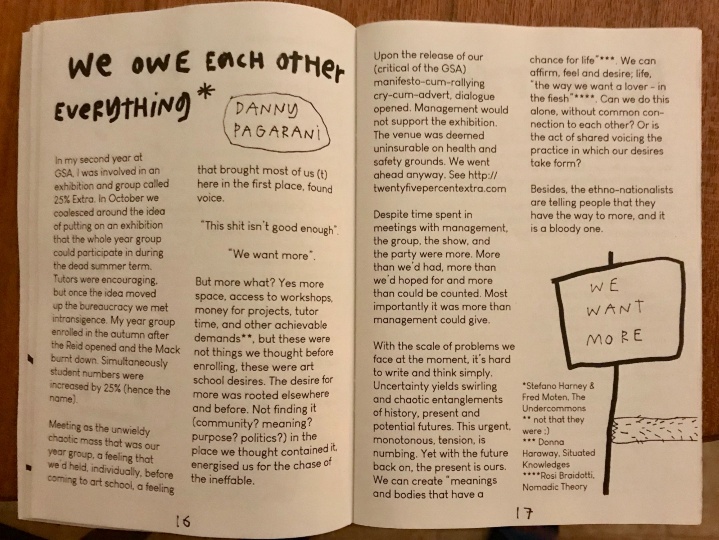 we owe each other
everything*
DANNY
PAGARANi
In my second year at
GSA, I was involved in an
exhibition and group called
25% Extra. In October we
coalesced around the idea
of putting on an exhibition
that the whole year group
could participate in during
the dead summer term.
Tutors were encouraging,
but once the idea moved
up the bureaucracy we met
intransigence. My year group
enrolled in the autumn after
the Reid opened and the Mack
burnt down. Simultaneously
student numbers were
increased by 25% (hence the
name).
Meeting as the unwieldy
chaotic mass that was our
year group, a feeling that
we'd held, individually, before
coming to art school, a feeling
that brought most of us (t)
here in the first place, found
voice.
"This shit isn't good enough".
"We want more".
But more what? Yes more
space, access to workshops,
money for projects, tutor
time, and other achievable
demands**, but these were
not things we thought before
enrolling, these were art
school desires. The desire for
more was rooted elsewhere
and before. Not finding it
(community? meaning?
purpose? politics?) in the
place we thought contained it,
energised us for the chase of
the ineffable.
16
Upon the release of our
(critical of the GSA)
manifesto-cum-rallying
cry-cum-advert, dialogue
opened. Management would
not support the exhibition.
The venue was deemed
uninsurable on health and
safety grounds. We went
ahead anyway. See http://
twentyfivepercentextra.com
Despite time spent in
meetings with management,
the group, the show, and
the party were more. More
than we'd had, more than
we'd hoped for and more
than could be counted. Most
importantly it was more than
management could give.
With the scale of problems we
face at the moment, it's hard
to write and think simply.
Uncertainty yields swirling
and chaotic entanglements
of history, present and
potential futures. This urgent,
monotonous, tension, is
numbing. Yet with the future
back on, the present is ours.
We can create "meanings
and bodies that have a
chance for life"***. We can
affirm, feel and desire; life,
"the way we want a lover - in
the flesh"****. Can we do this
alone, without common con-
nection to each other? Or is
the act of shared voicing the
practice in which our desires
take form?
Besides, the ethno-nationalists
are telling people that they
have the way to more, and it
is a bloody one.
WE
WANT
MORE
*Stefano Harney &
Fred Moten, The
Undercommons
** not that they
were ;)
*** Donna
Haraway, Situated
Knowledges
****Rosi Braidotti,
Nomadic Theory
17